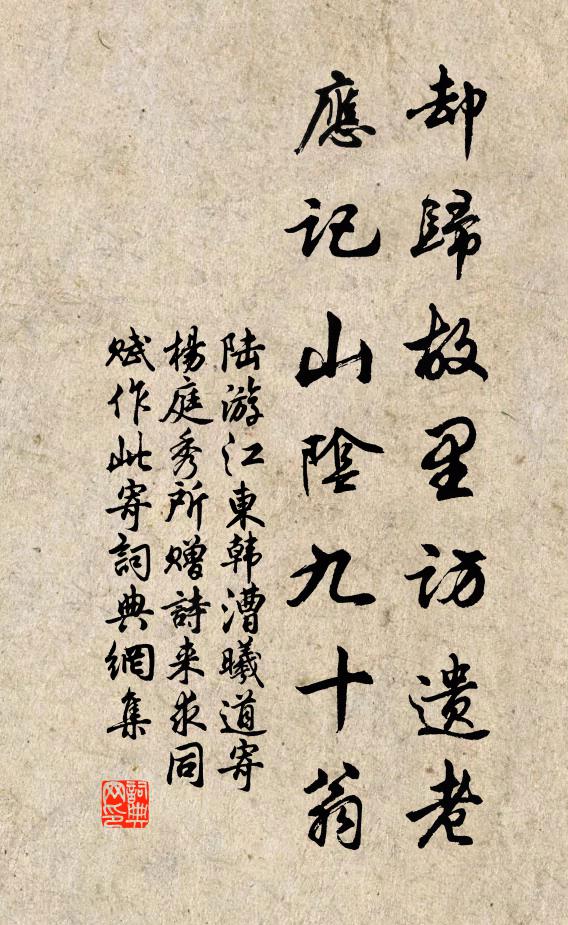 却歸故里訪遺老
應記山陰九十翁
陸游江東韓漕曦道寄
楊庭秀所贈詩来求同
賦作此寄詞典網集
詞典
网印